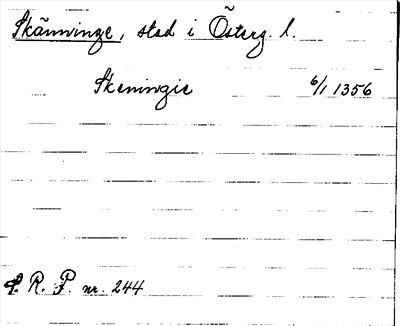 Skänninge, stad i Österg. l.
Skeningie 6/1 1356
R. P. nr. 244